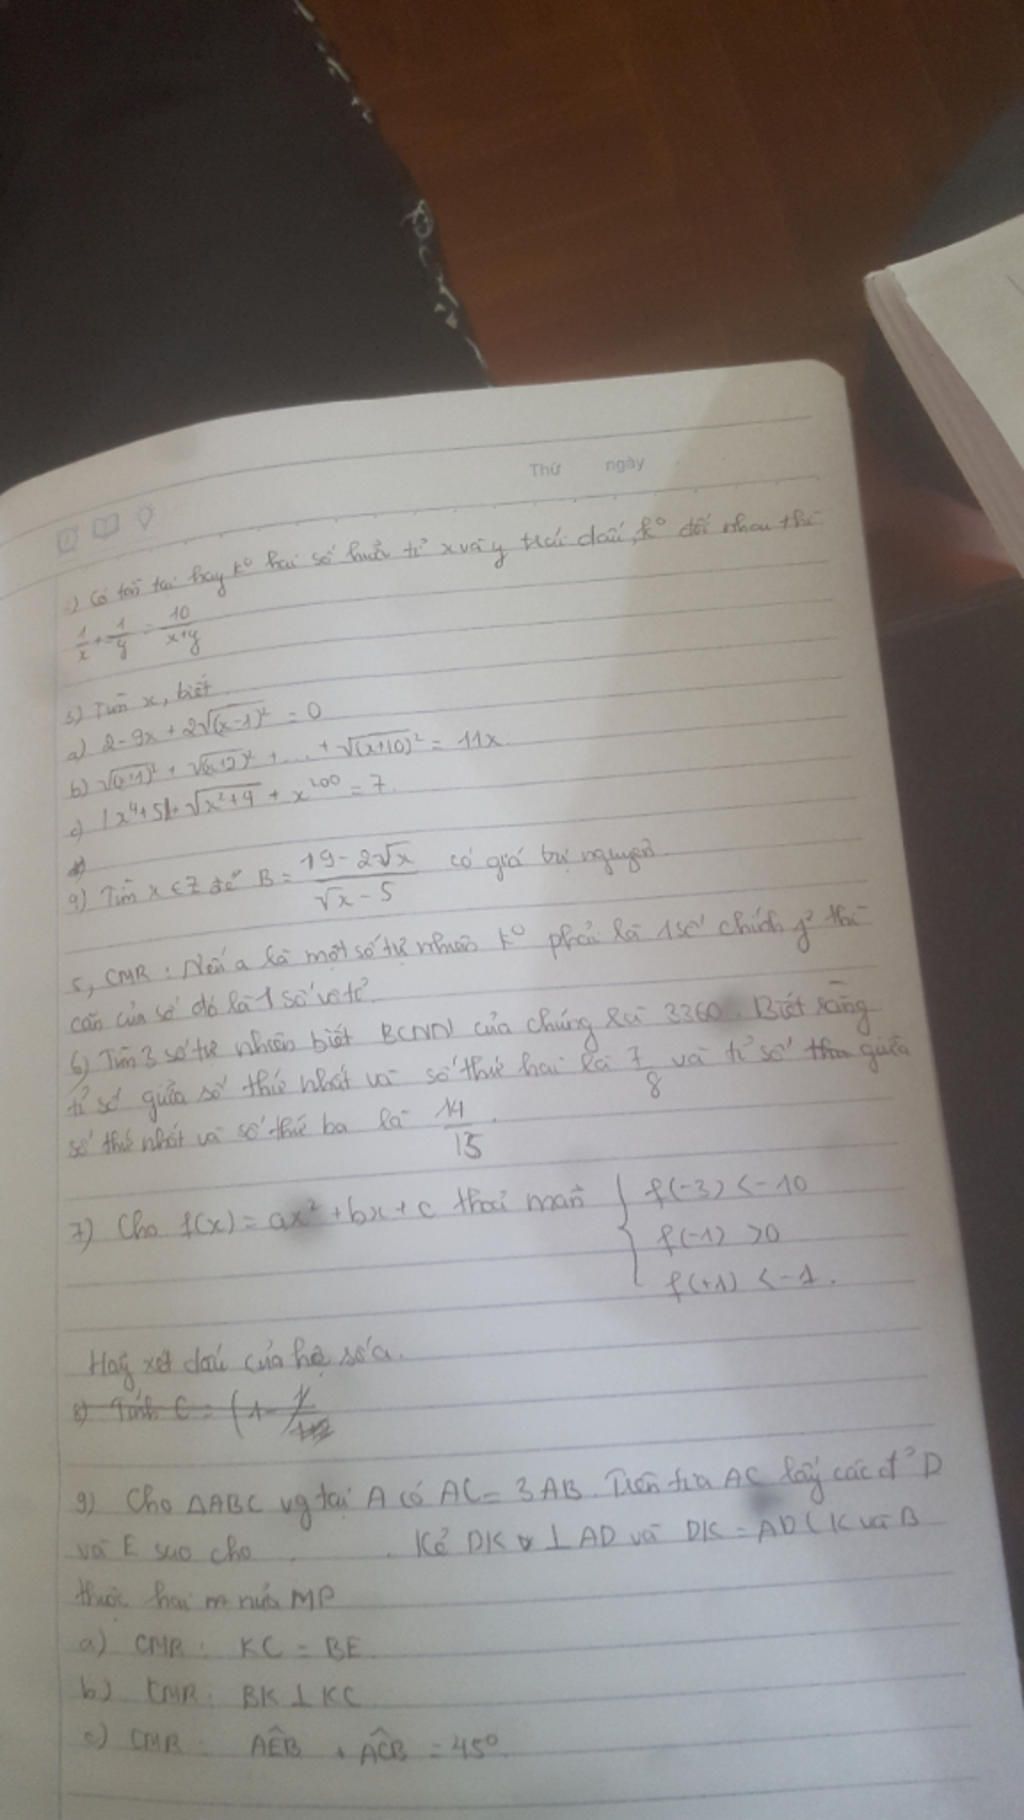 Thứ ngày
2) Có tồn tại hay k⁰ hai số hữu tỉ x và y trái dấu, k⁰ đối nhau thì
1/x + 1/y = 10/(x+y)
3) Tìm x, biết
a) 2-9x + 2√(x-1)² = 0
b) √(x+1)² + √(x+2)² + ... + √(x+10)² = 11x
c) |x⁴+5| + √(x²+4) + x²⁰⁰ = 7.
4) Tìm x ∈ Z để B = (19-2√x)/(√x-5) có giá trị nguyên
5, CMR: Nếu a là một số tự nhiên k⁰ phải là 1 số chính ph² thì
căn của số đó là 1 số vô tỉ.
6) Tìm 3 số tự nhiên biết BCNN của chúng là 3360. Biết rằng
tỉ số giữa số thứ nhất và số thứ hai là 7/8 và tỉ số giữa
số thứ nhất và số thứ ba là 14/15.
7) Cho f(x) = ax² + bx + c thoả mãn { f(-3) < -10
f(-1) > 0
f(+1) < -1.
Hãy xét dấu của hệ số a.
8) Tính C = (1 -
9) Cho ΔABC vg tại A có AC = 3AB. Trên tia AC lấy các đ² D
và E sao cho . . Kẻ DK ⊥ AD và DK = AD (K và B
thuộc hai nửa MP
a) CMR: KC = BE.
b) CMR: BK ⊥ KC
c) CMR: AÊB + AĈB = 45⁰.